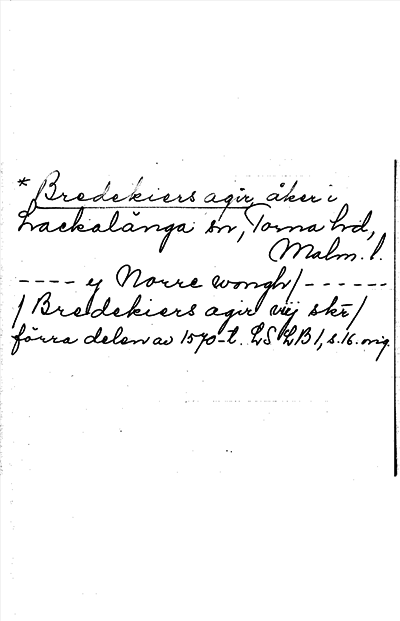 * Bredekiers agir, åker i
Lackalänga sn, Torna hd,
Malm. l.
---- y Norre wongh/------
/Bredekiers agir vij skr/
förra delen av 1570-t. LSLB1, s.16. orig.